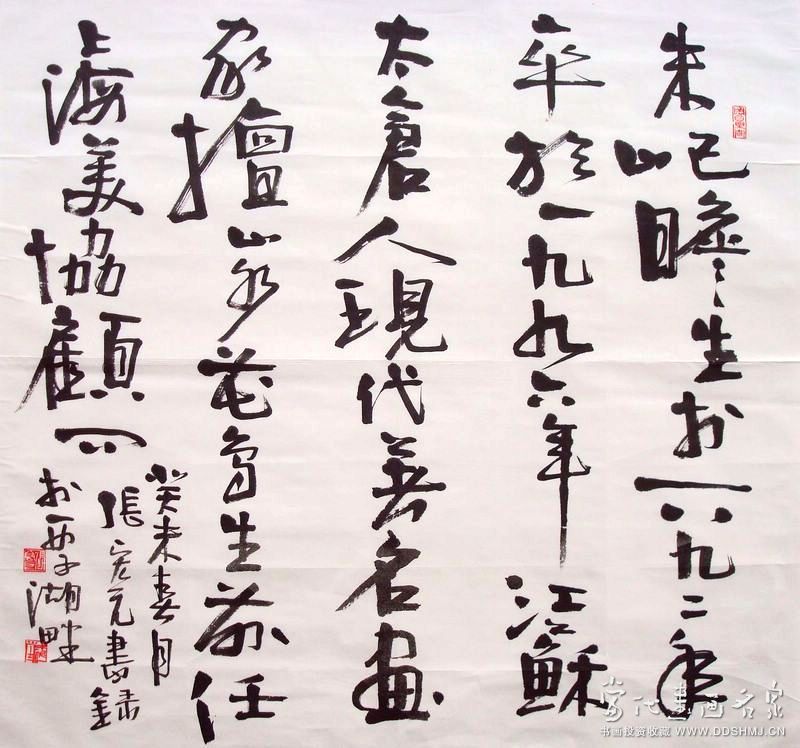 朱屺瞻生於一八九二年
卒於一九九六年江蘇
太倉人現代著名畫
家擅山水花鳥生前任
上海美協顧问
癸未春月
張宏元書錄
於西子湖畔
当代书画名家
书画投资收藏 WWW.DDSHMJ.CN